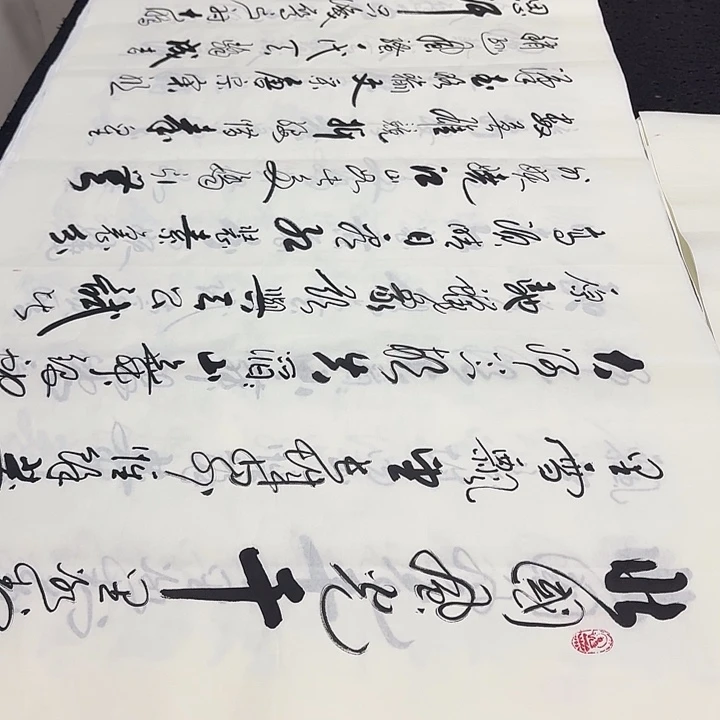 北國風光千里冰封
里雪飄望長城內外惟餘莽
大河上下頓失滔滔山舞銀蛇
原馳蠟象欲與天公試比
高須晴日看紅裝素裹分
外妖嬈江山如此多嬌引無
數英雄競折腰惜秦皇
漢武略輸文采唐宗宋祖
稍遜風騷一代天驕成吉
思汗只識彎弓射大雕